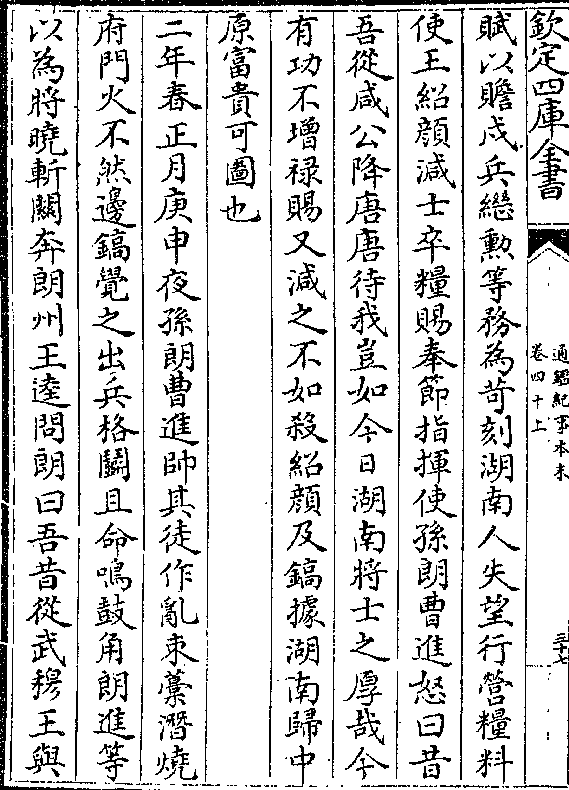 欽定四庫全書
通鑑紀事本末
卷四十上
三十七
賦以贍戍兵繼勲等務為苛刻湖南人失望行營糧料
使王紹顔減士卒糧賜奉節指揮使孫朗曹進怒曰昔
吾從咸公降唐唐待我豈如今日湖南將士之厚哉今
有功不增禄賜又減之不如殺紹顔及鎬據湖南歸中
原富貴可圖也
二年春正月庚申夜孫朗曹進帥其徒作亂束藁潛燒
府門火不然邊鎬覺之出兵格鬬且命鳴鼓角朗進等
以為將曉斬關奔朗州王逵問朗曰吾昔從武穆王與